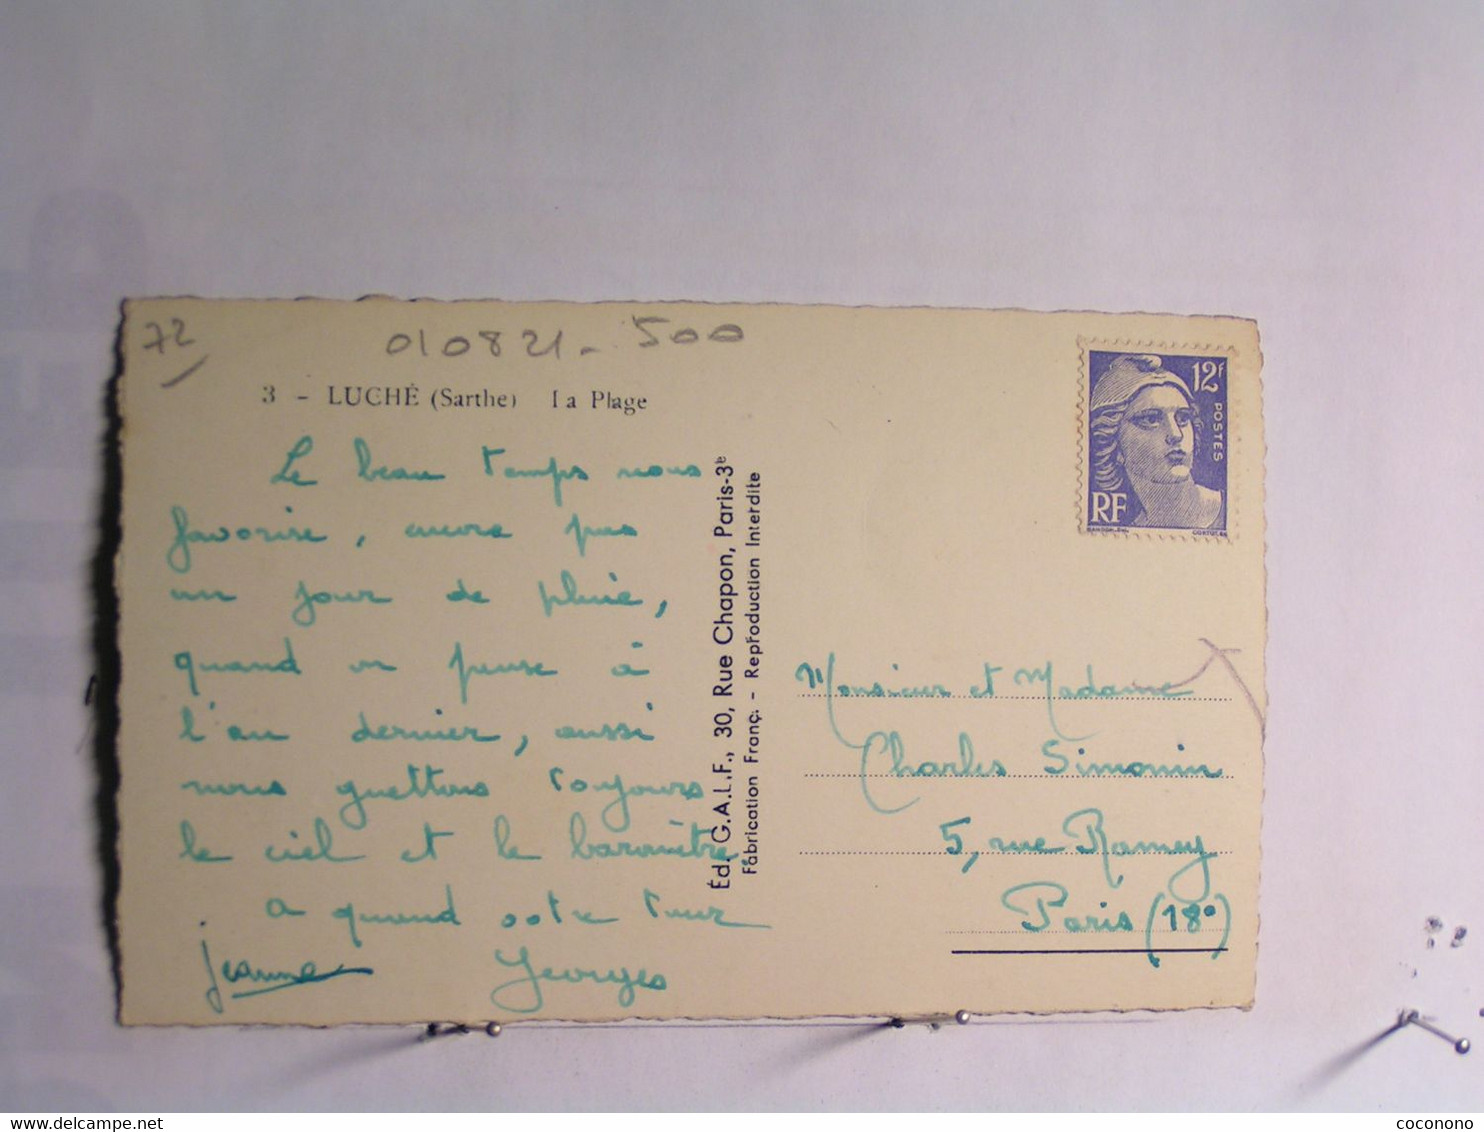 72
010821 - 500
3 - LUCHÉ (Sarthe) La Plage
Le beau temps nous
favorise, encore pas
un jour de pluie,
quand on pense à
l'an dernier, aussi
nous guettons toujours
le ciel et le baromètre.
A quand votre tour
Jeanne Georges
Éd. G.A.L.F., 30, Rue Chapon, Paris-3e
Fabrication Franç. - Reproduction Interdite
12F
POSTES
RF
GANDON. DEL.
CORTOT. SC.
Monsieur et Madame
Charles Simonin
5, rue Ramey
Paris (18e)
delcampe.net
coconono